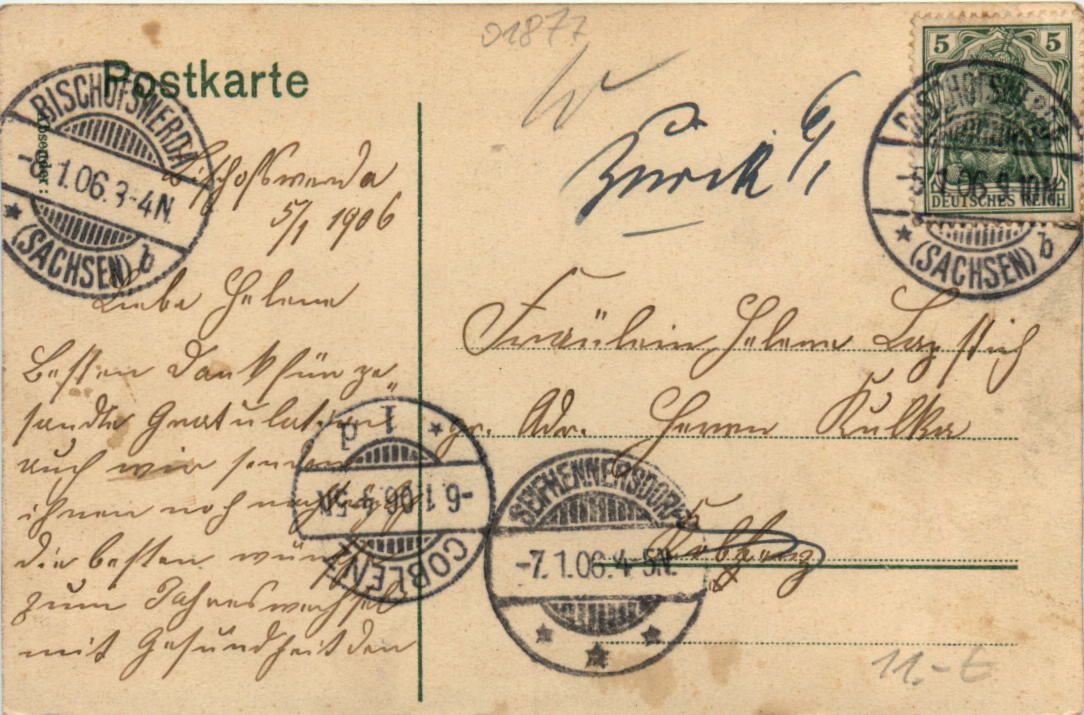 01877
Postkarte
Absender:
5 5
DEUTSCHES REICH
BISCHOFSWERDA
1.06. 3-4N.
(SACHSEN) b
BISCHOFSWERDA
1.06. 9-10N.
(SACHSEN) b
Zurück 6/1
Bischofswerda
5/1 1906
Liebe Helene
Besten Dank für ge
sandte Gratulation
auch wir senden
ihnen noch nachträgl
die besten wünsche
zum Jahreswechsel
mit Gesundheit den
Fräulein Helene
Adr. Herrn Kulka
Coblenz
COBLENZ
1 d
-6.1.06. 4-5N.
SEIFHENNERSDORF
-7.1.06. 4-5N.
11.- €